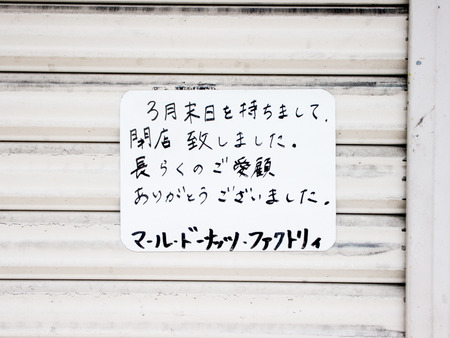 3月末日を持ちまして、
閉店致しました。
長らくのご愛顧
ありがとうございました。
マール・ドーナッツ・ファクトリィ